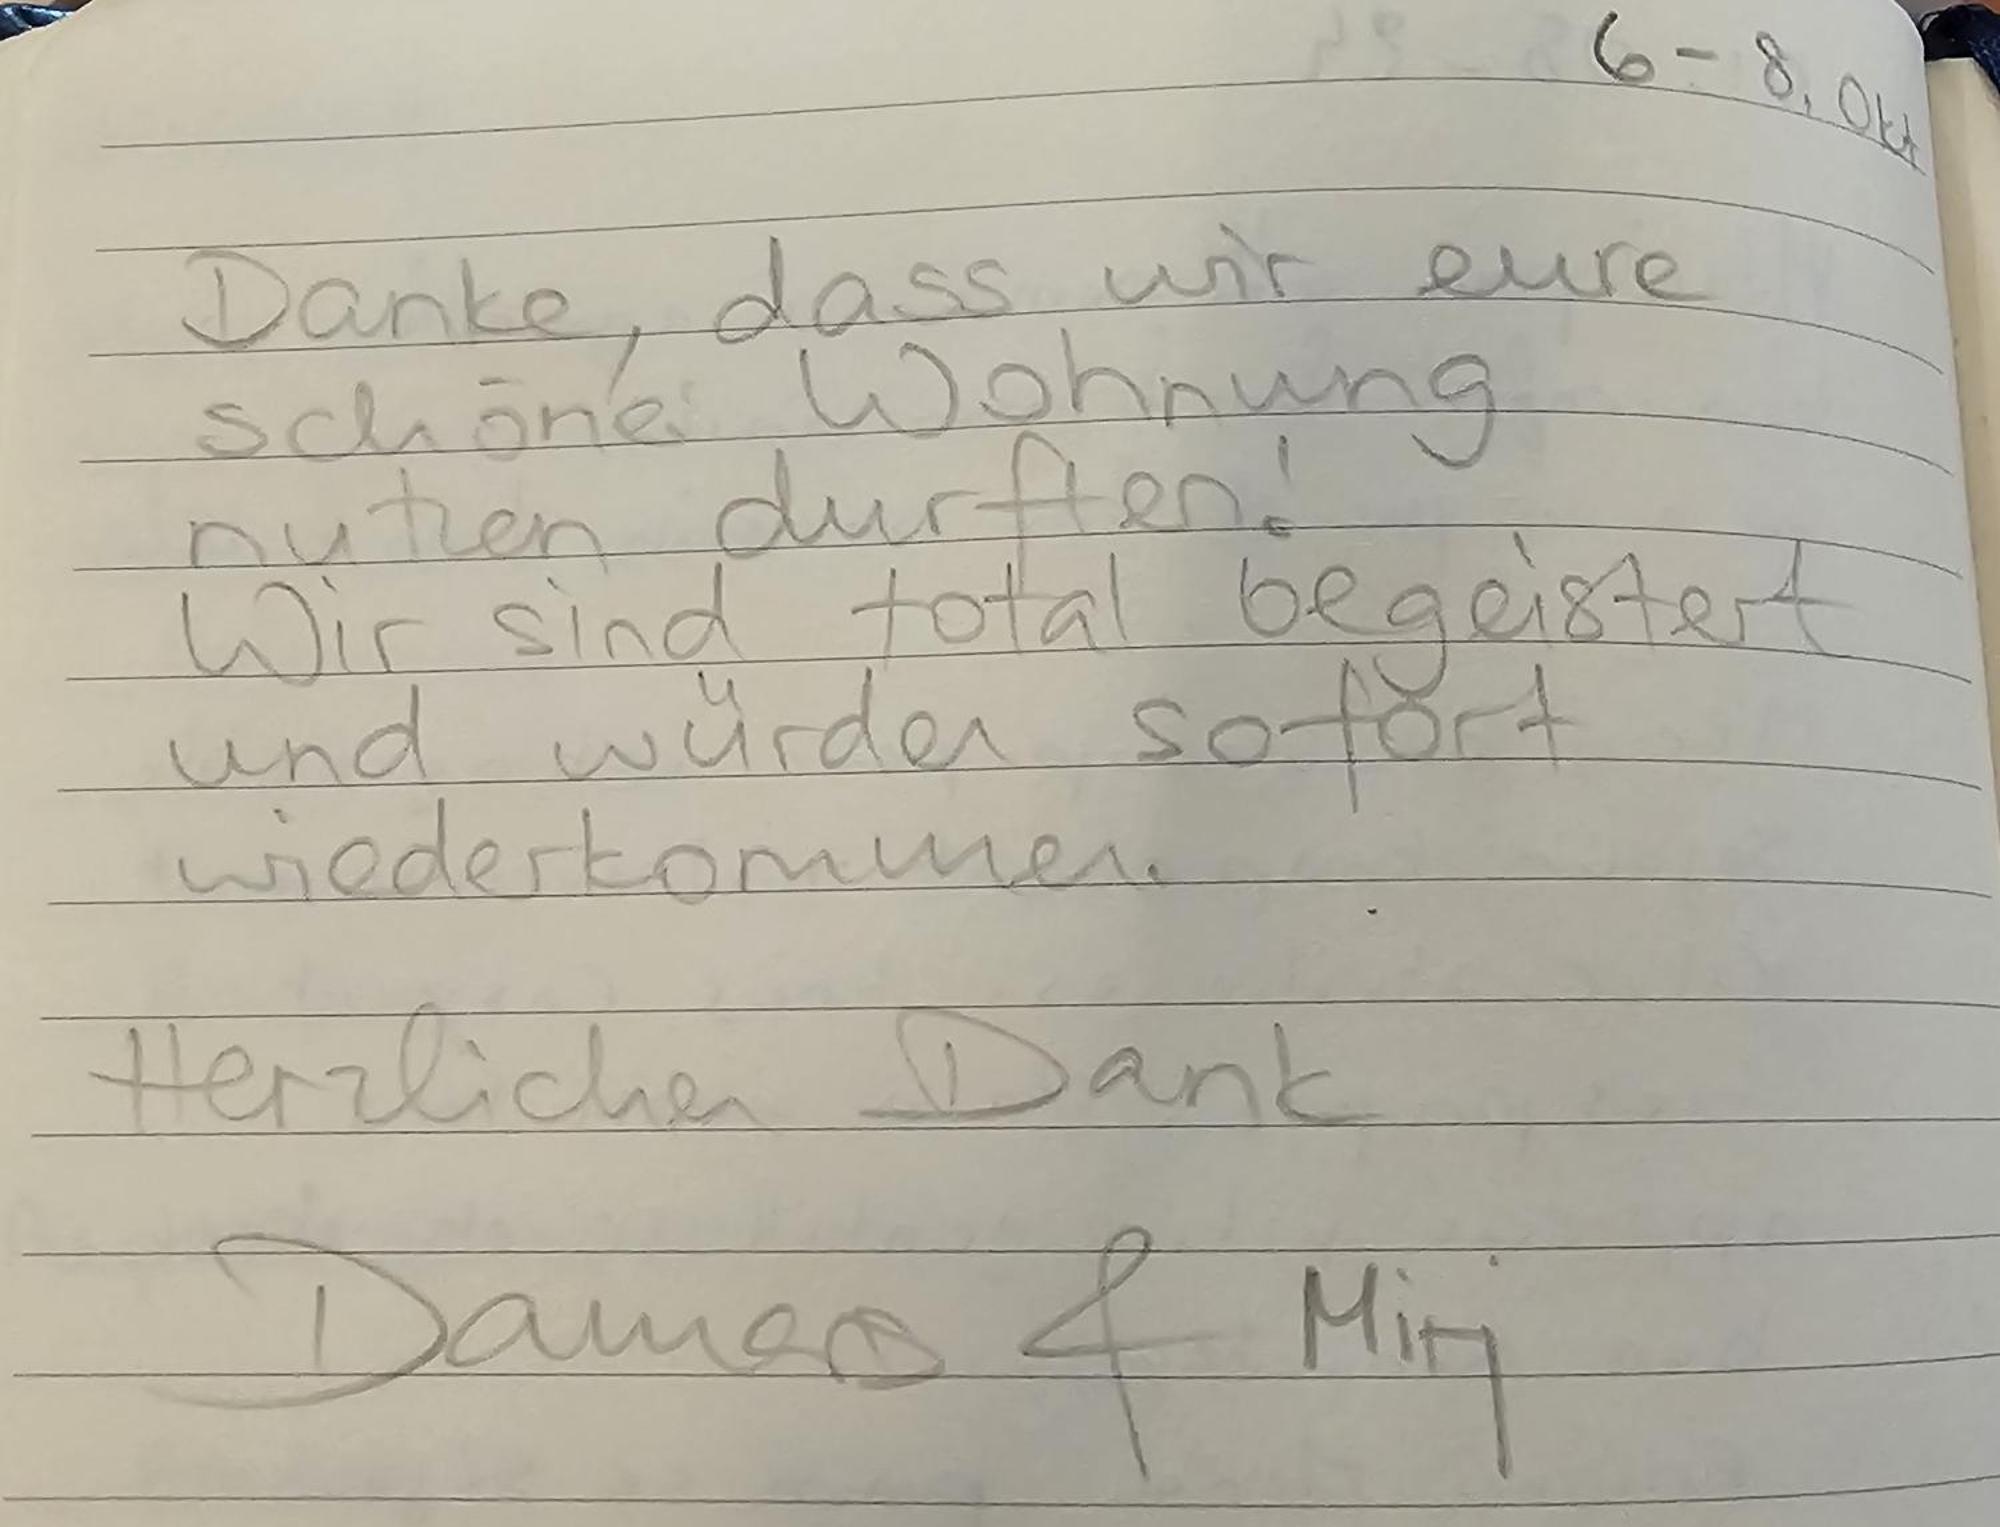 6 - 8. Okt
Danke, dass wir eure
schöne Wohnung
nutzen durften!
Wir sind total begeistert
und würden sofort
wiederkommen.
Herzlichen Dank
& Mirj